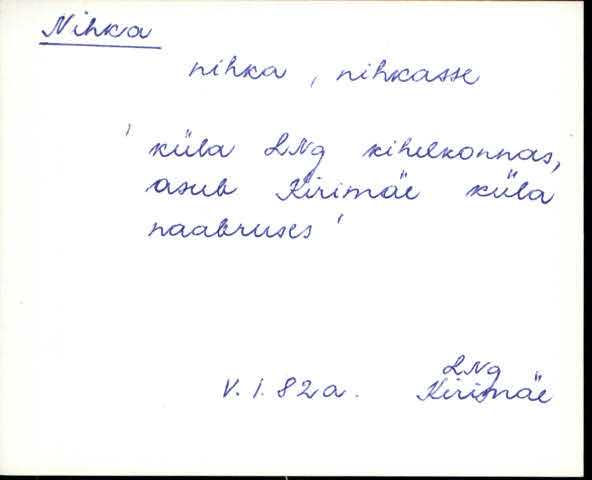 Nihka
nihka, nihkasse
' küla LNg kihelkonnas,
asub Kirimäe küla
naabruses '
LNg
V. I. 82a. Kirimäe